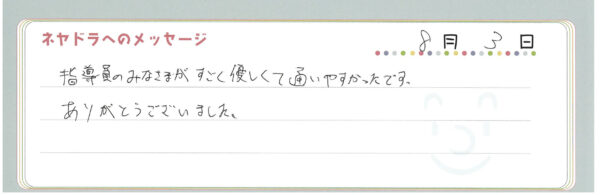 ネヤドラへのメッセージ
8月 3日
指導員のみなさまがすごく優しくて通いやすかったです。
ありがとうございました。